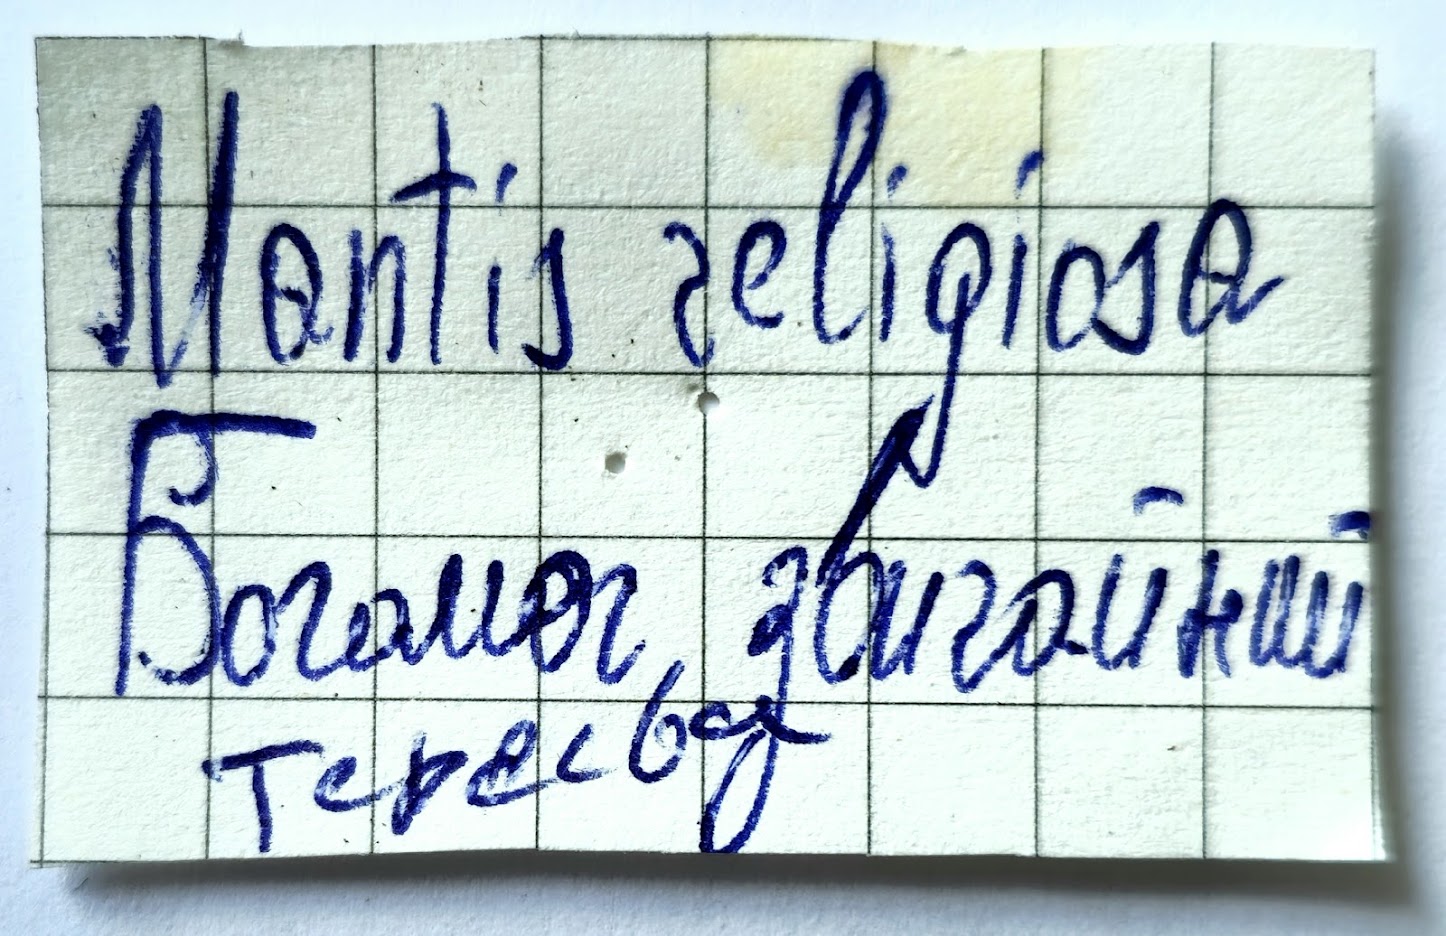 Mantis religiosa
Богомол звичайний
Тересва